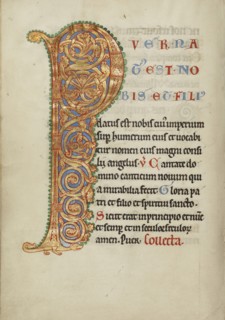 P VER NA
T EST NO
BIS ET FILI'
datus est nobis cui' imperium
sup humerum eius et vocabi
tur nomen eius magni consi
lij angelus. V Cantate do
mino canticum novum qui
a mirabilia fecit. Gloria pa
tri et filio et spiritui sancto.
Sicut erat in principio et nūc
et semp et in seculorum
amen. Puer. Collecta.